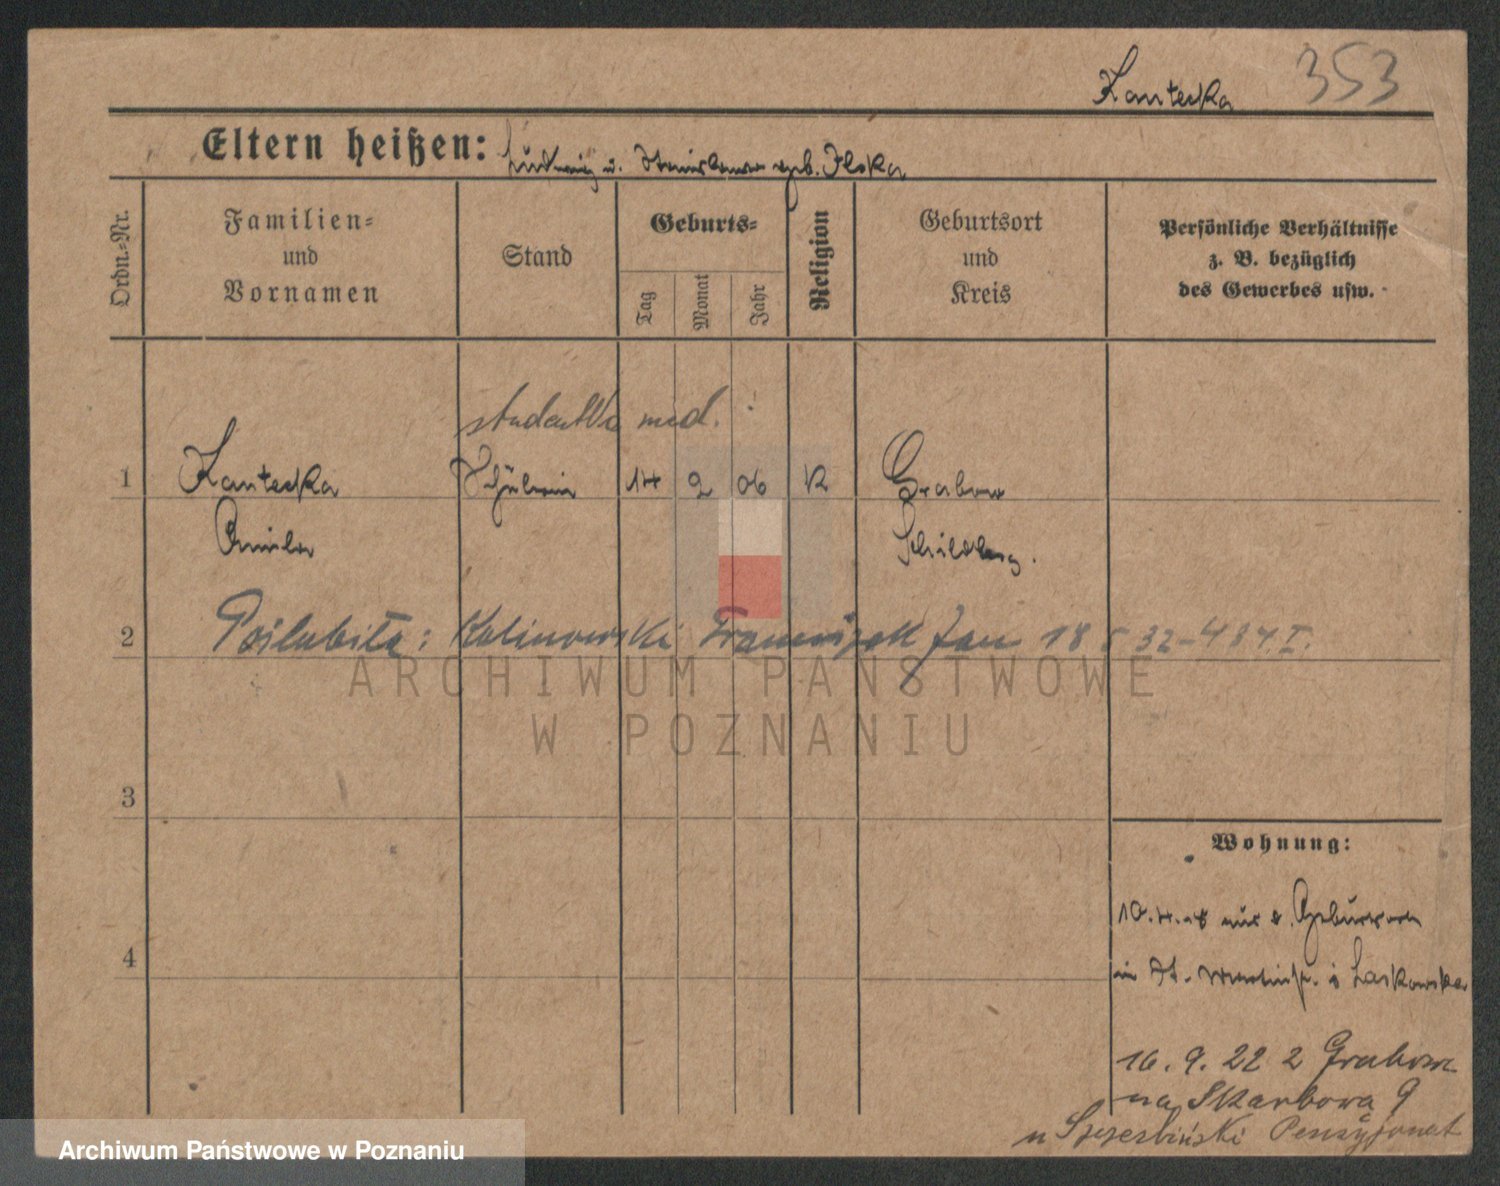 Kantecka 353
Eltern heißen: Ludwig u. Stanislawa geb. Ilska
Ordn.-Nr.
Familien-
und
Vornamen
Stand
Geburts-
Tag
Monat
Jahr
Religion
Geburtsort
und
Kreis
Persönliche Verhältnisse
z. B. bezüglich
des Gewerbes usw.
studentka med.
1 Kantecka Schülerin 14 2 06 K Grabow
Schildberg.
2 Poślubiła: Kalinowski Franciszek Jan 18 5 32 - 484.I.
ARCHIWUM PAŃSTWOWE
W POZNANIU
3
Wohnung:
4
10.4. aus d. Geburtsort
in St. Martinstr. Laskowska
16. 9. 22 z Grabowa
na Skarbowa 9
u Szczerbiński Pensyjonat
Archiwum Państwowe w Poznaniu